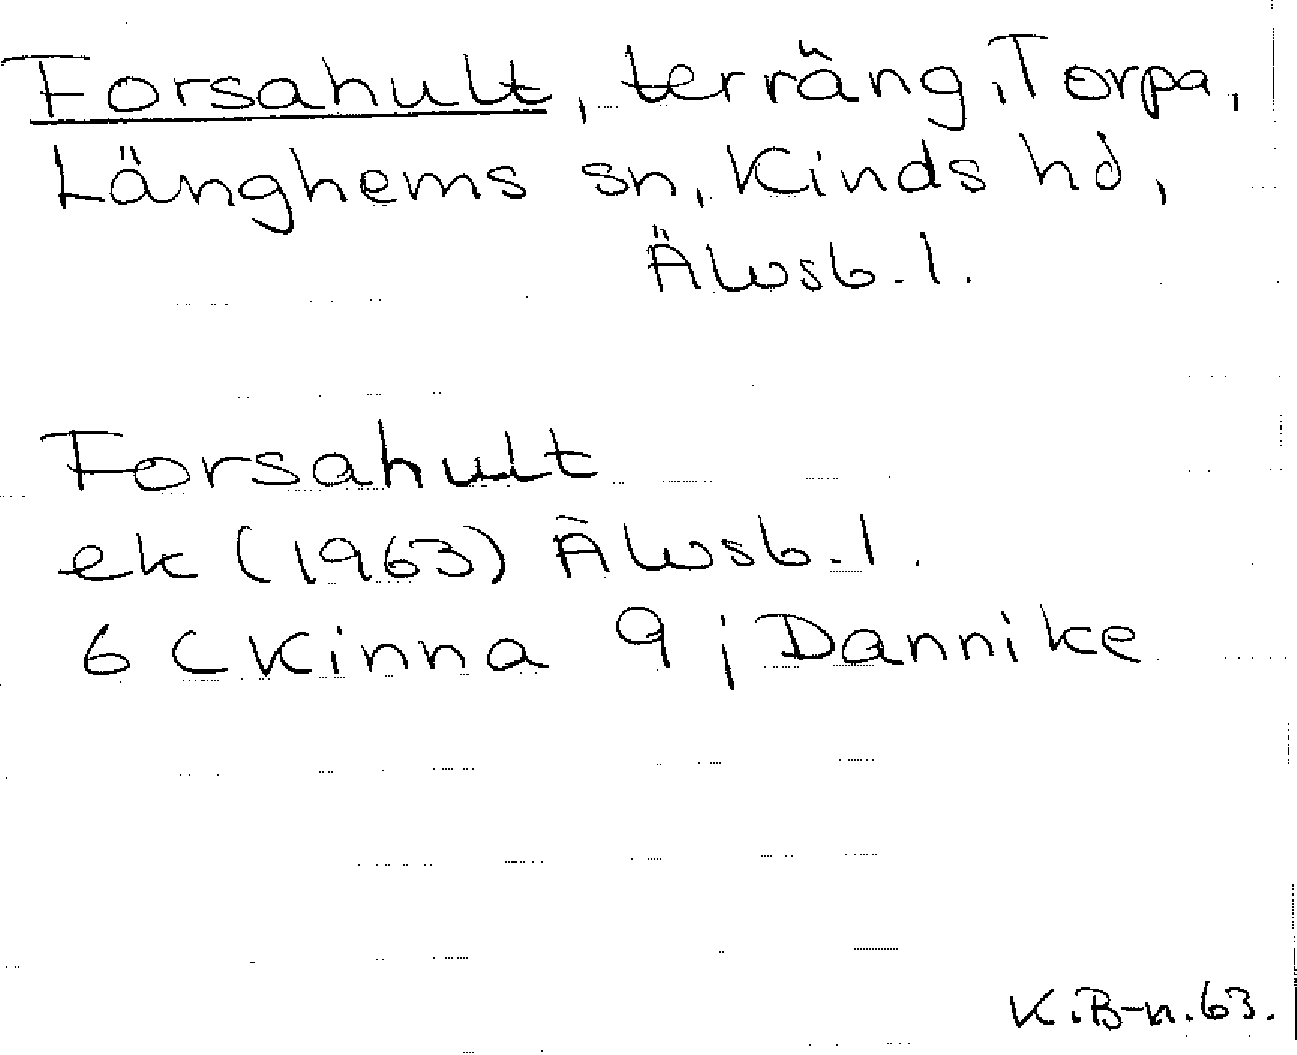 Forsahult, terräng, Torpa,
Länghems sn, Kinds hd,
Älvsb. l.
Forsahult
ek (1963) Älvsb. l.
6 C Kinna 9 ; Dannike
K.B-n. 63.